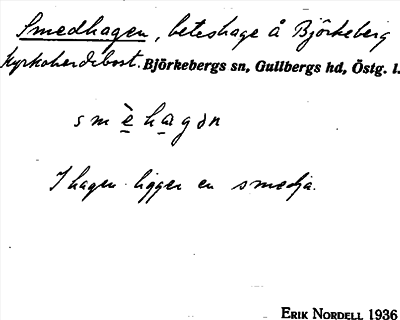 Smedhagen, beteshage å Björkeberg
Kyrkoherdebost. Björkebergs sn, Gullbergs hd, Östg. l.
smèhagən
I hagen ligger en smedja.
ERIK NORDELL 1936